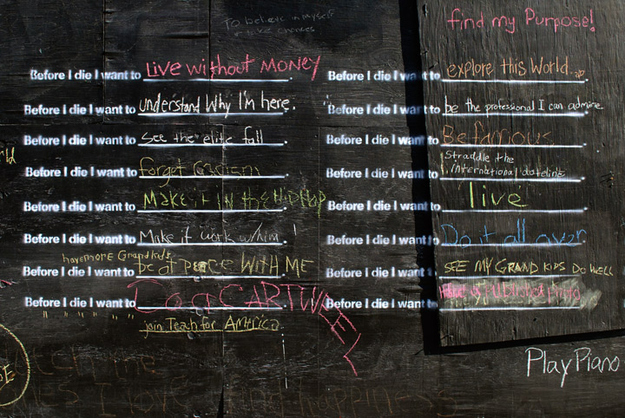 To believe in myself
& take chances
find my Purpose!
Before I die I want to Live without MONEY.
Before I die I want to understand Why I'm here.
Before I die I want to see the elite fall.
Before I die I want to forget racism.
Before I die I want to Make it in the HipHop.
Before I die I want to Make it work w/him!
have more Grandkids
Before I die I want to be at peace WITH ME
Before I die I want to Do a CARTWHEEL
" " " " " join Teach for America.
Before I die I want to explore this World...
Before I die I want to be the professional I can admire.
Before I die I want to Be famous.
Straddle the
Before I die I want to international dateline.
Before I die I want to live.
Before I die I want to Do it all over.
Before I die I want to SEE MY GRAND KIDS DO WELL
Before I die I want to
Play Piano